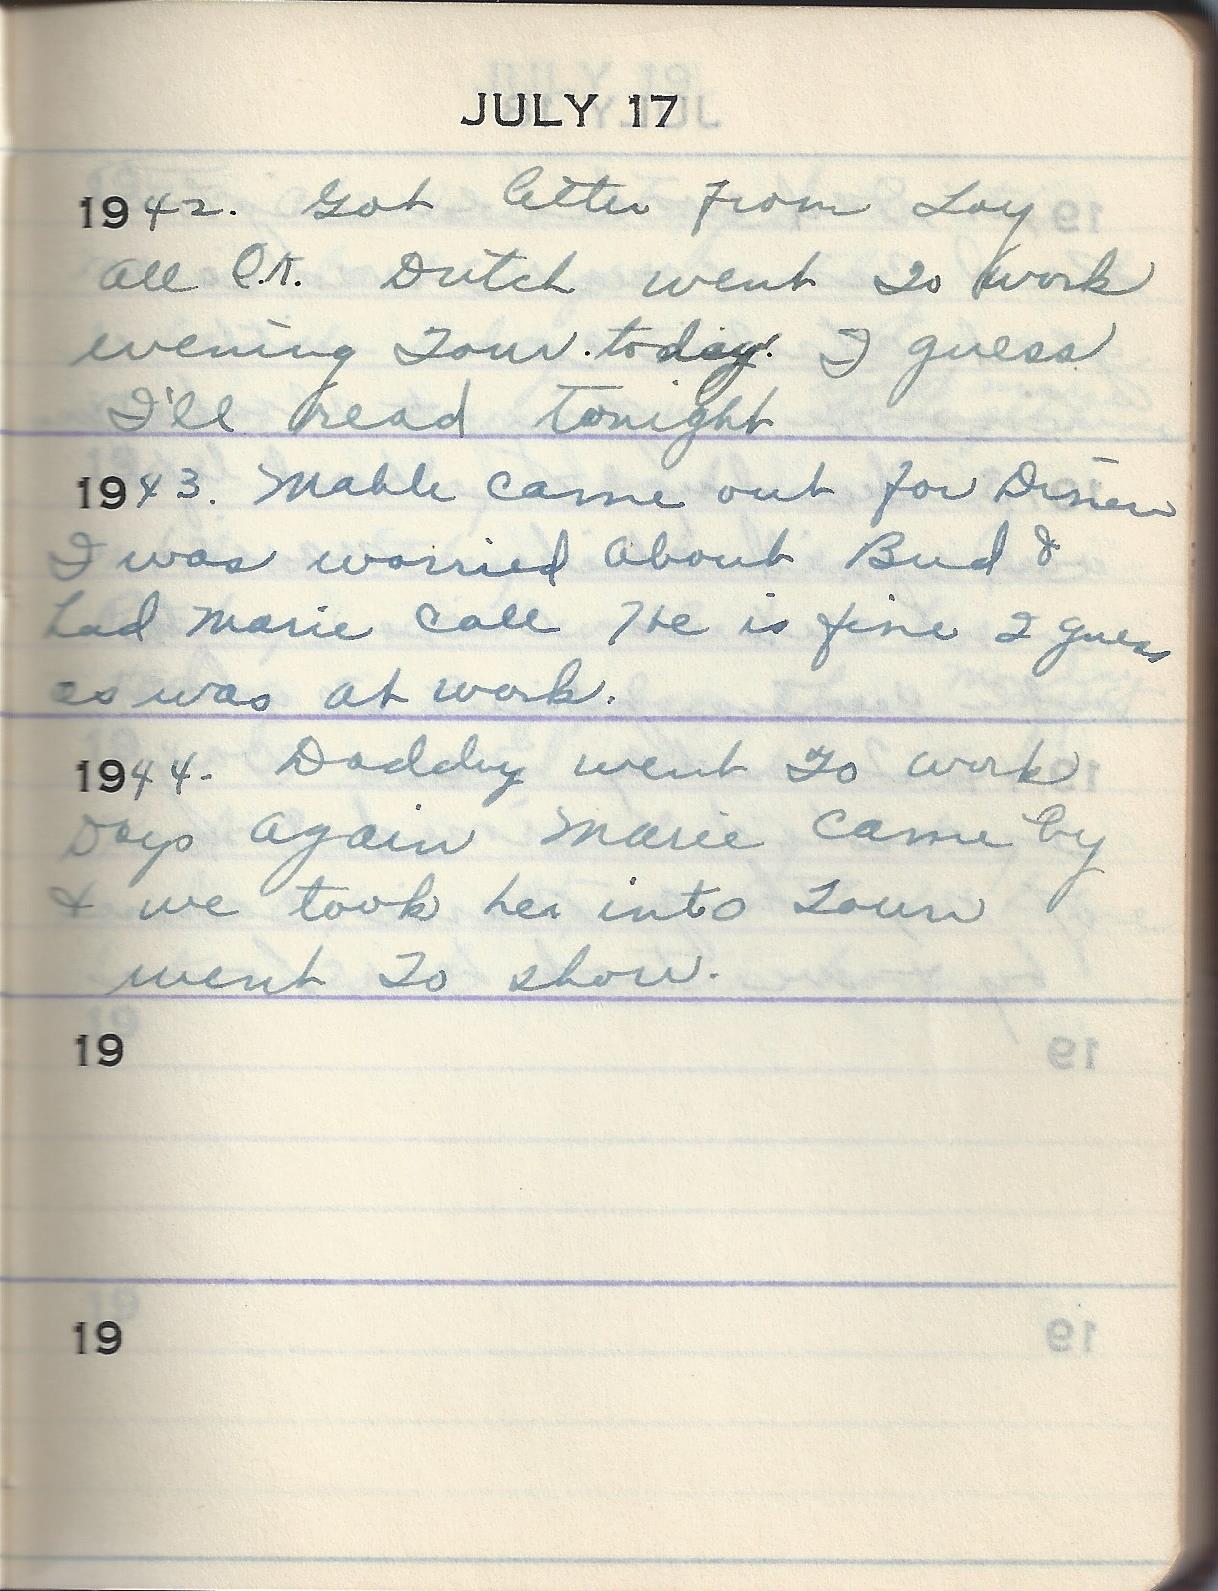 JULY 17
1942. Got letter from Loy
all O.K. Dutch went to work
evening Tour. today. I guess
I'll read tonight
1943. Mable came out for Dinner
I was worried about Bud &
had Marie call He is fine I guess
as was at work.
1944. Daddy went to work
Days again Marie came by
& we took her into Town
went to show.
19
19